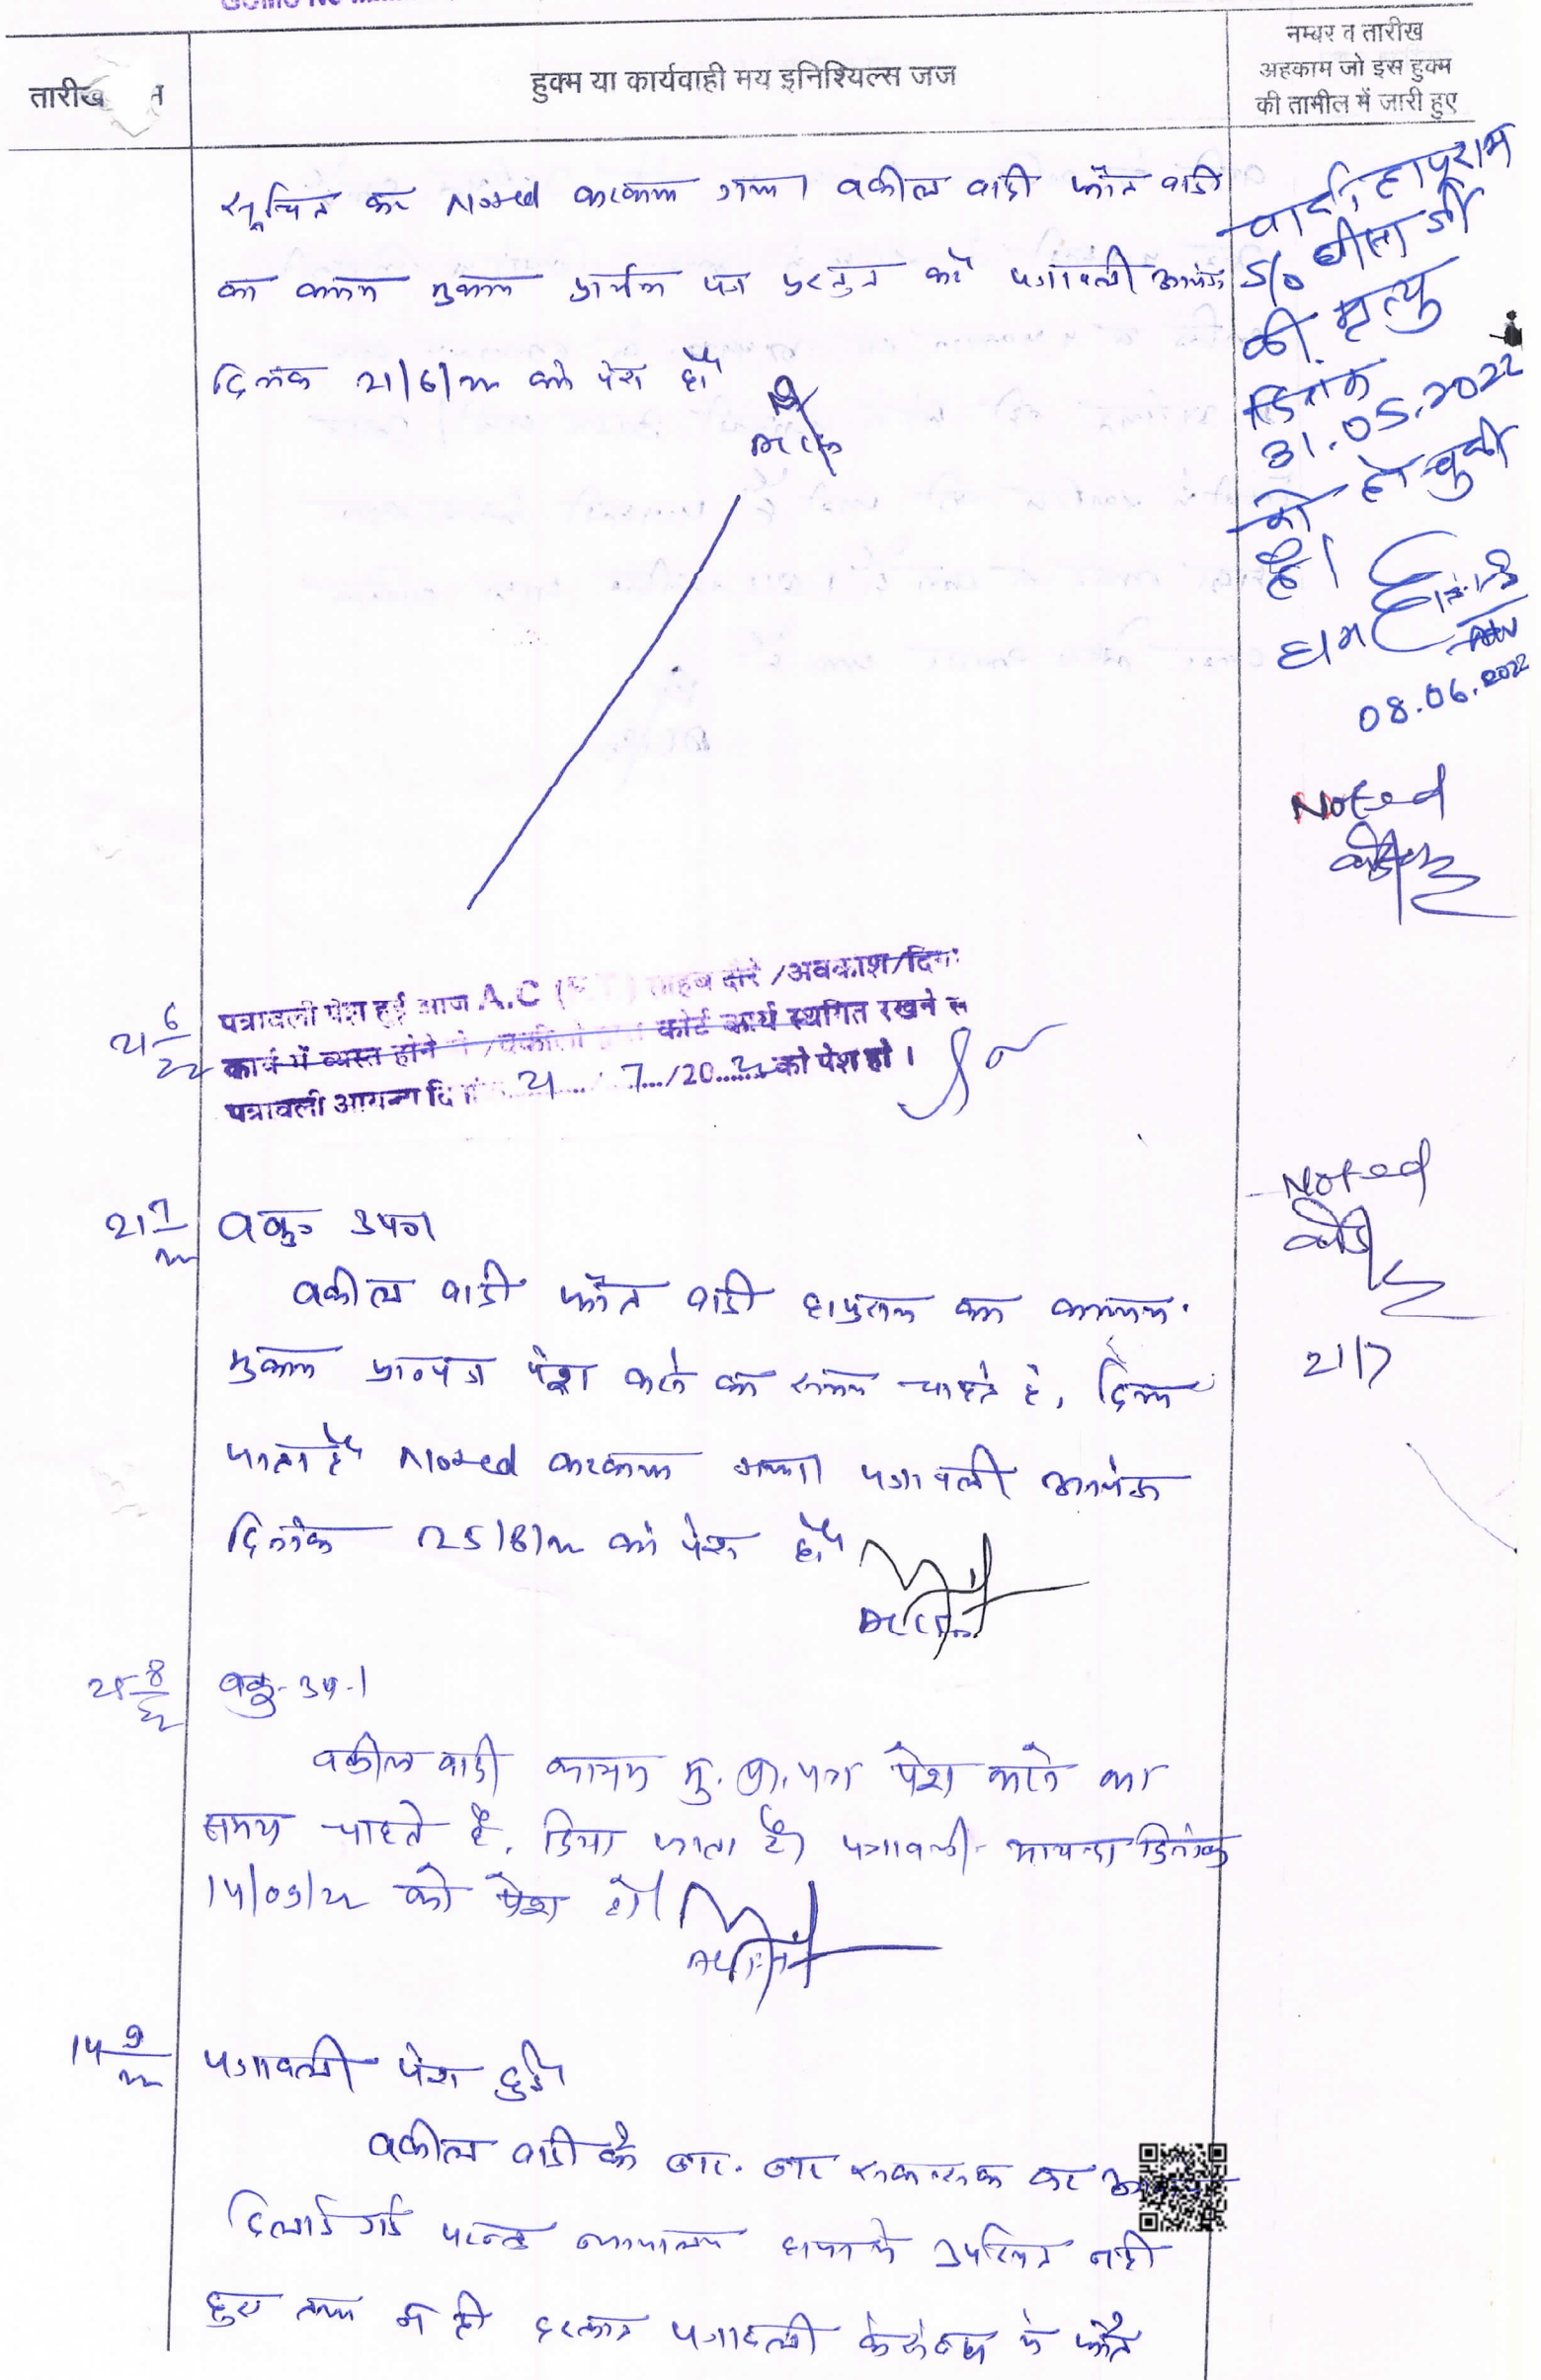 तारीख
हुक्म या कार्यवाही मय इनिश्यिल्स जज
नम्बर व तारीख
अहकाम जो इस हुक्म
की तामील में जारी हुए
सूचित कर Noted करवाया गया। वकील वादी फौत वादी
का कायम मुकाम प्रार्थना पत्र प्रस्तुत करें पत्रावली आयंदा
दिनांक 21/6/22 को पेश हो।
वादी, हापुराम
S/o घीसा जी
की मृत्यु
दिनांक
31.05.2022
को हो चुकी
है।
08.06.2022
Noted
21 6/22
पत्रावली पेश हुई आज A.C दौरे /अवकाश/
कार्य में व्यस्त होने से /वकीलो द्वारा कोर्ट कार्य स्थगित रखने से
पत्रावली आयन्दा 21 / 7 /20 22 को पेश हो।
21 7/22
वकु उप०।
वकील वादी फौत वादी हापुराम का कायम
मुकाम प्रा०पत्र पेश करने का समय चाहते है, दिया
जाता है। Noted करवाया गया। पत्रावली आयंदा
दिनांक 25/8/22 को पेश हो।
Noted
21/7
25 8/22
वकु-उप-।
वकील वादी कायम मु. प्रा. पत्र पेश करने का
समय चाहते है, दिया जाता है। पत्रावली आयन्दा दिनांक
14/09/22 को पेश हो।
14 9/22
पत्रावली पेश हुई।
वकील वादी को बार-बार रुक रुक कर
दिलाई गई परन्तु न्यायालय उपस्थित नही
हुए तथा न ही पत्रावली के में फौत